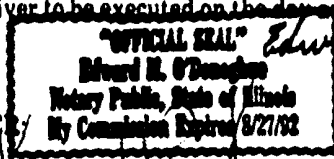 iver to be executed on the day
"OFFICIAL SEAL"
Edward M. O'Donoghue
Notary Public, State of Illinois
My Commission Expires 8/27/92